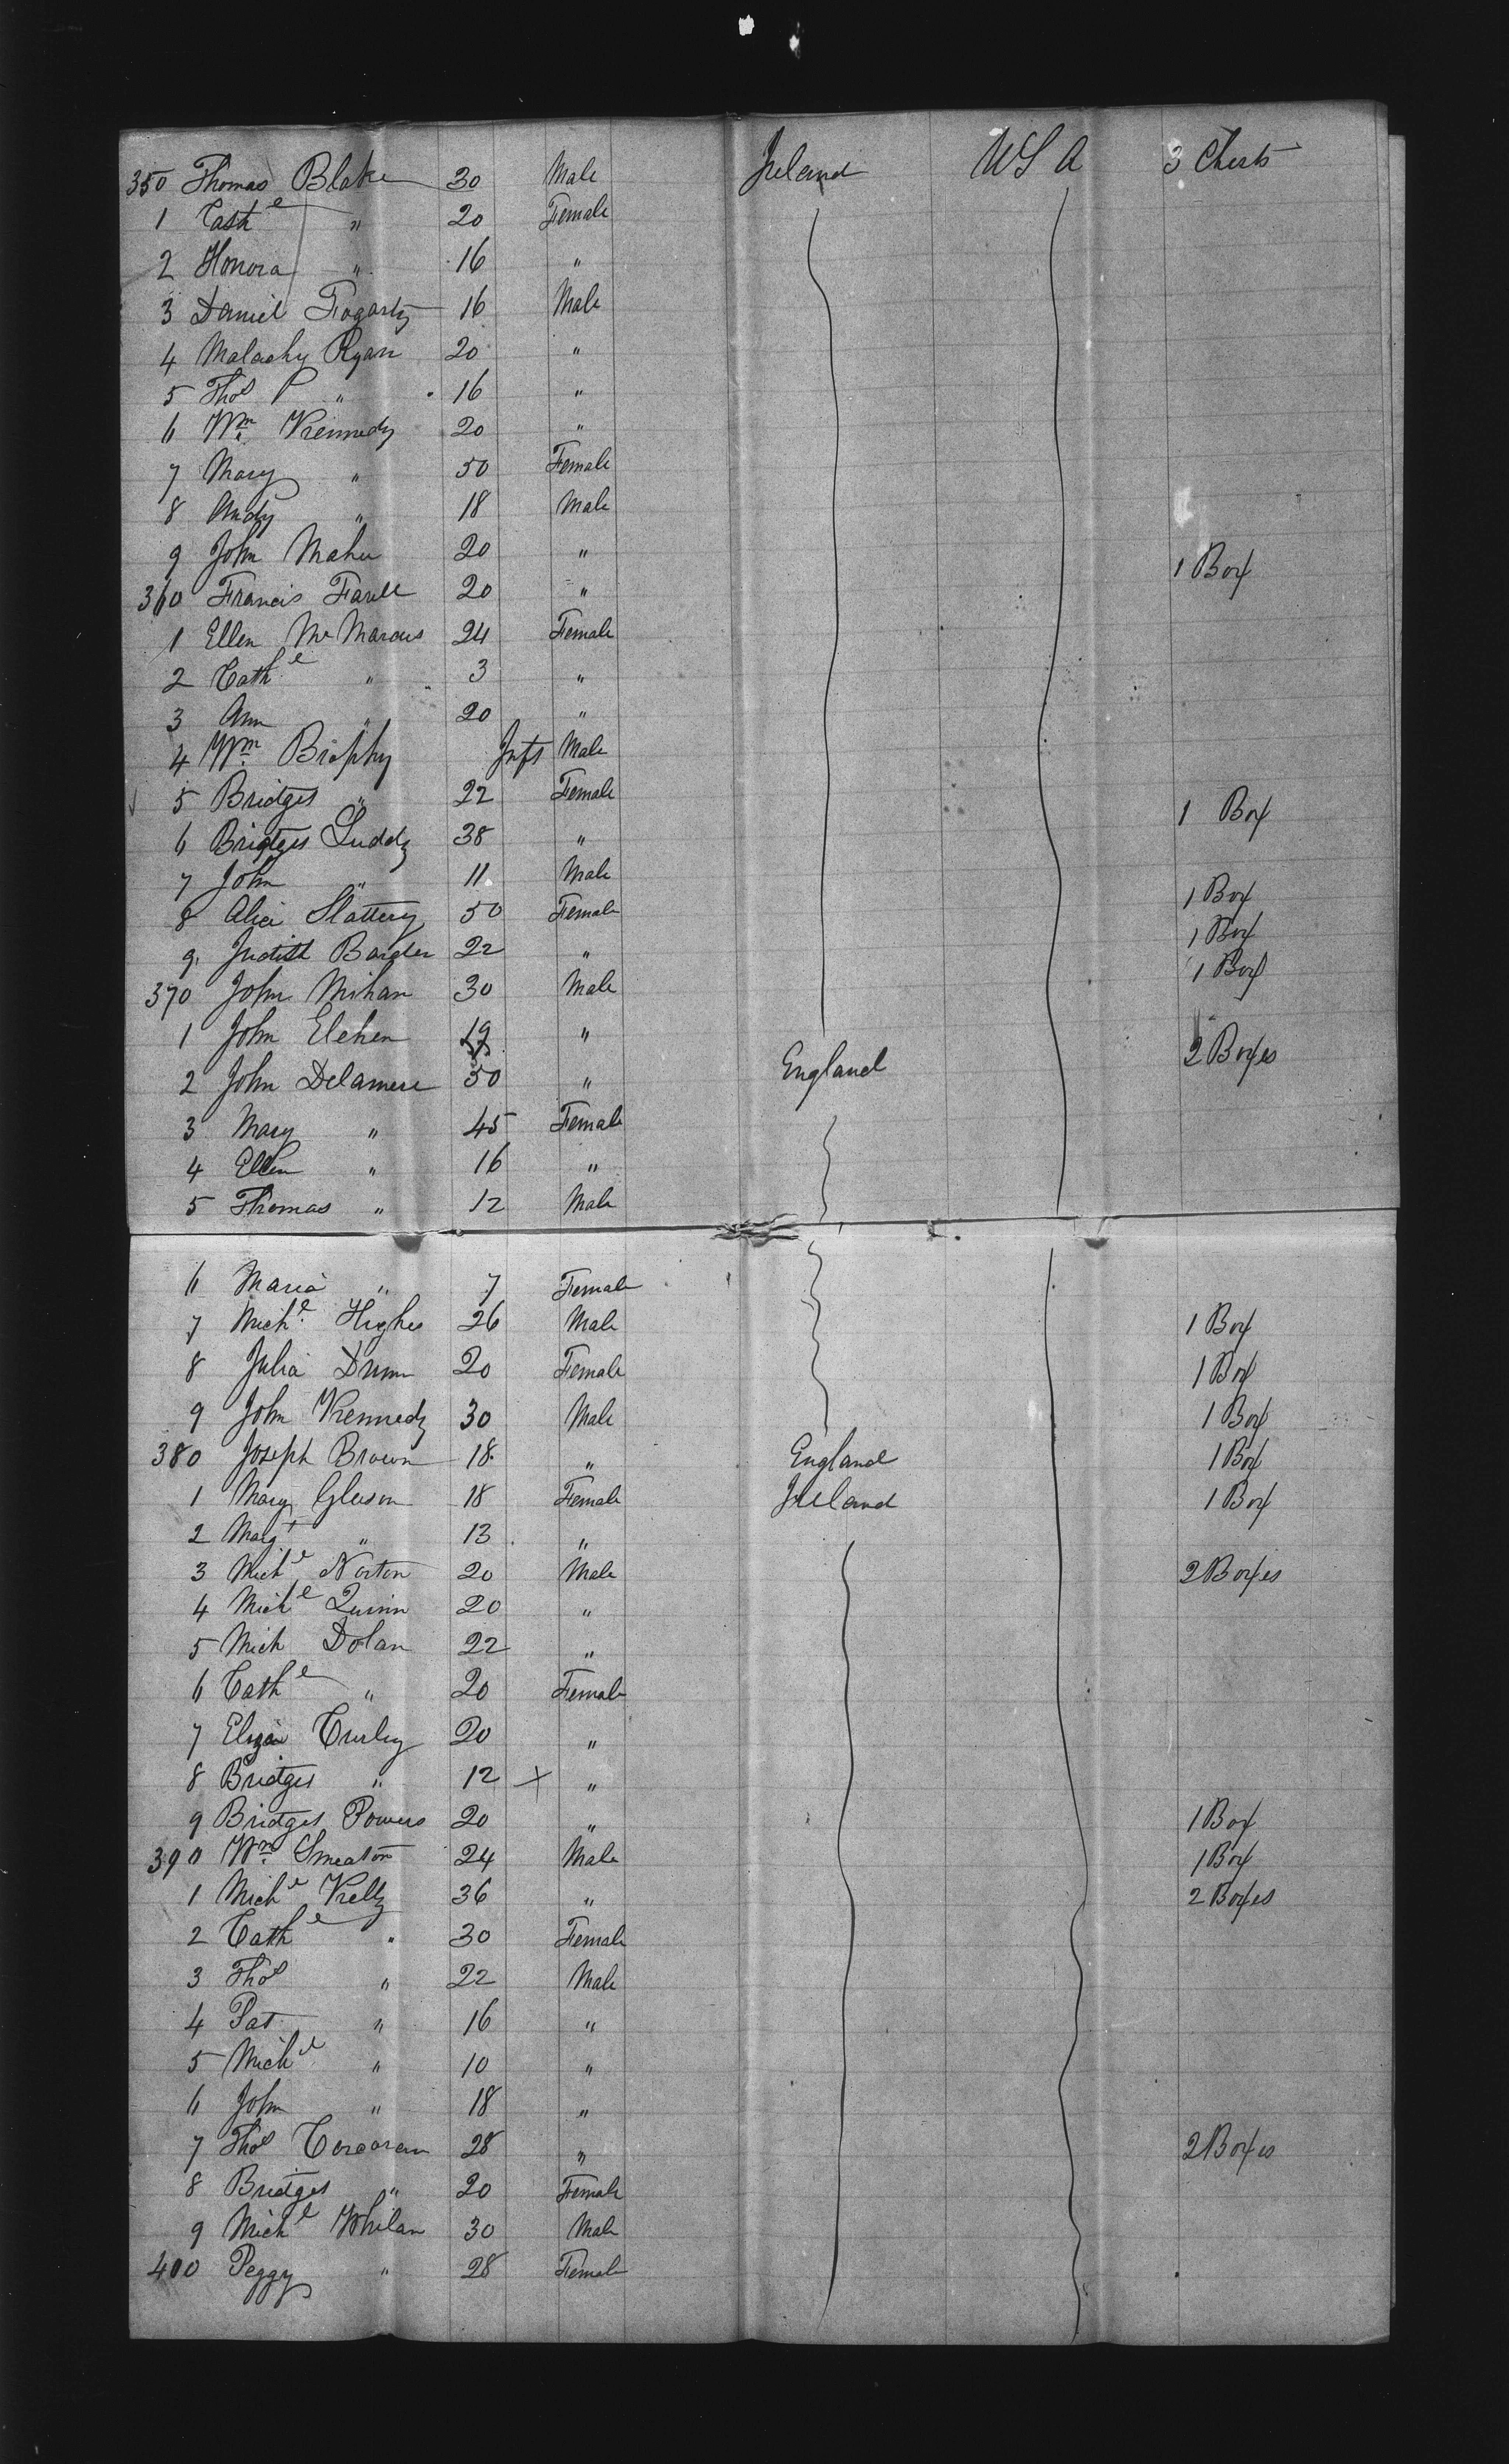 350 Thomas Blake 30 Male Ireland USA 3 Chests
1 Cathe " 20 Female
2 Honora " 16 "
3 Daniel Fogarty 16 Male
4 Malachy Ryan 20 "
5 Thos P " 16 "
6 Wm. Kennedy 20 "
7 Mary " 50 Female
8 Andy " 18 Male
9 John Maher 20 " 1 Box
360 Francis Farell 20 "
1 Ellen McMarcus 24 Female
2 Cathe " 3 "
3 Ann " 20 "
4 Wm. Brophy Inft Male
5 Bridget " 22 Female 1 Box
6 Bridget Luddy 38 "
7 John " 11 Male
8 Alice Slattery 50 Female 1 Box
9 Judith 22 " 1 Box
370 John Mihan 30 Male 1 Box
1 John "
2 John Delamere 50 " England 2 Boxes
3 Mary " 45 Female
4 Ellen " 16 "
5 Thomas " 12 Male
6 Maria " 7 Female
7 Miche. Hughes 26 Male 1 Box
8 Julia Dunn 20 Female 1 Box
9 John Kennedy 30 Male 1 Box
380 Joseph Brown 18 " England 1 Box
1 Mary Gleeson 18 Female Ireland 1 Box
2 Margt " 13 "
3 Miche Norton 20 Male 2 Boxes
4 Miche Quinn 20 "
5 Mich Dolan 22 "
6 Cathe " 20 Female
7 Eliza Curley 20 "
8 Bridget " 12 x "
9 Bridget Powers 20 " 1 Box
390 Wm. Smeaton 24 Male 1 Box
1 Miche Kelly 36 " 2 Boxes
2 Cathe " 30 Female
3 Thos " 22 Male
4 Pat " 16 "
5 Miche " 10 "
6 John " 18 "
7 Thos Corcoran 28 " 2 Boxes
8 Bridget " 20 Female
9 Miche Whelan 30 Male
400 Peggy " 28 Female